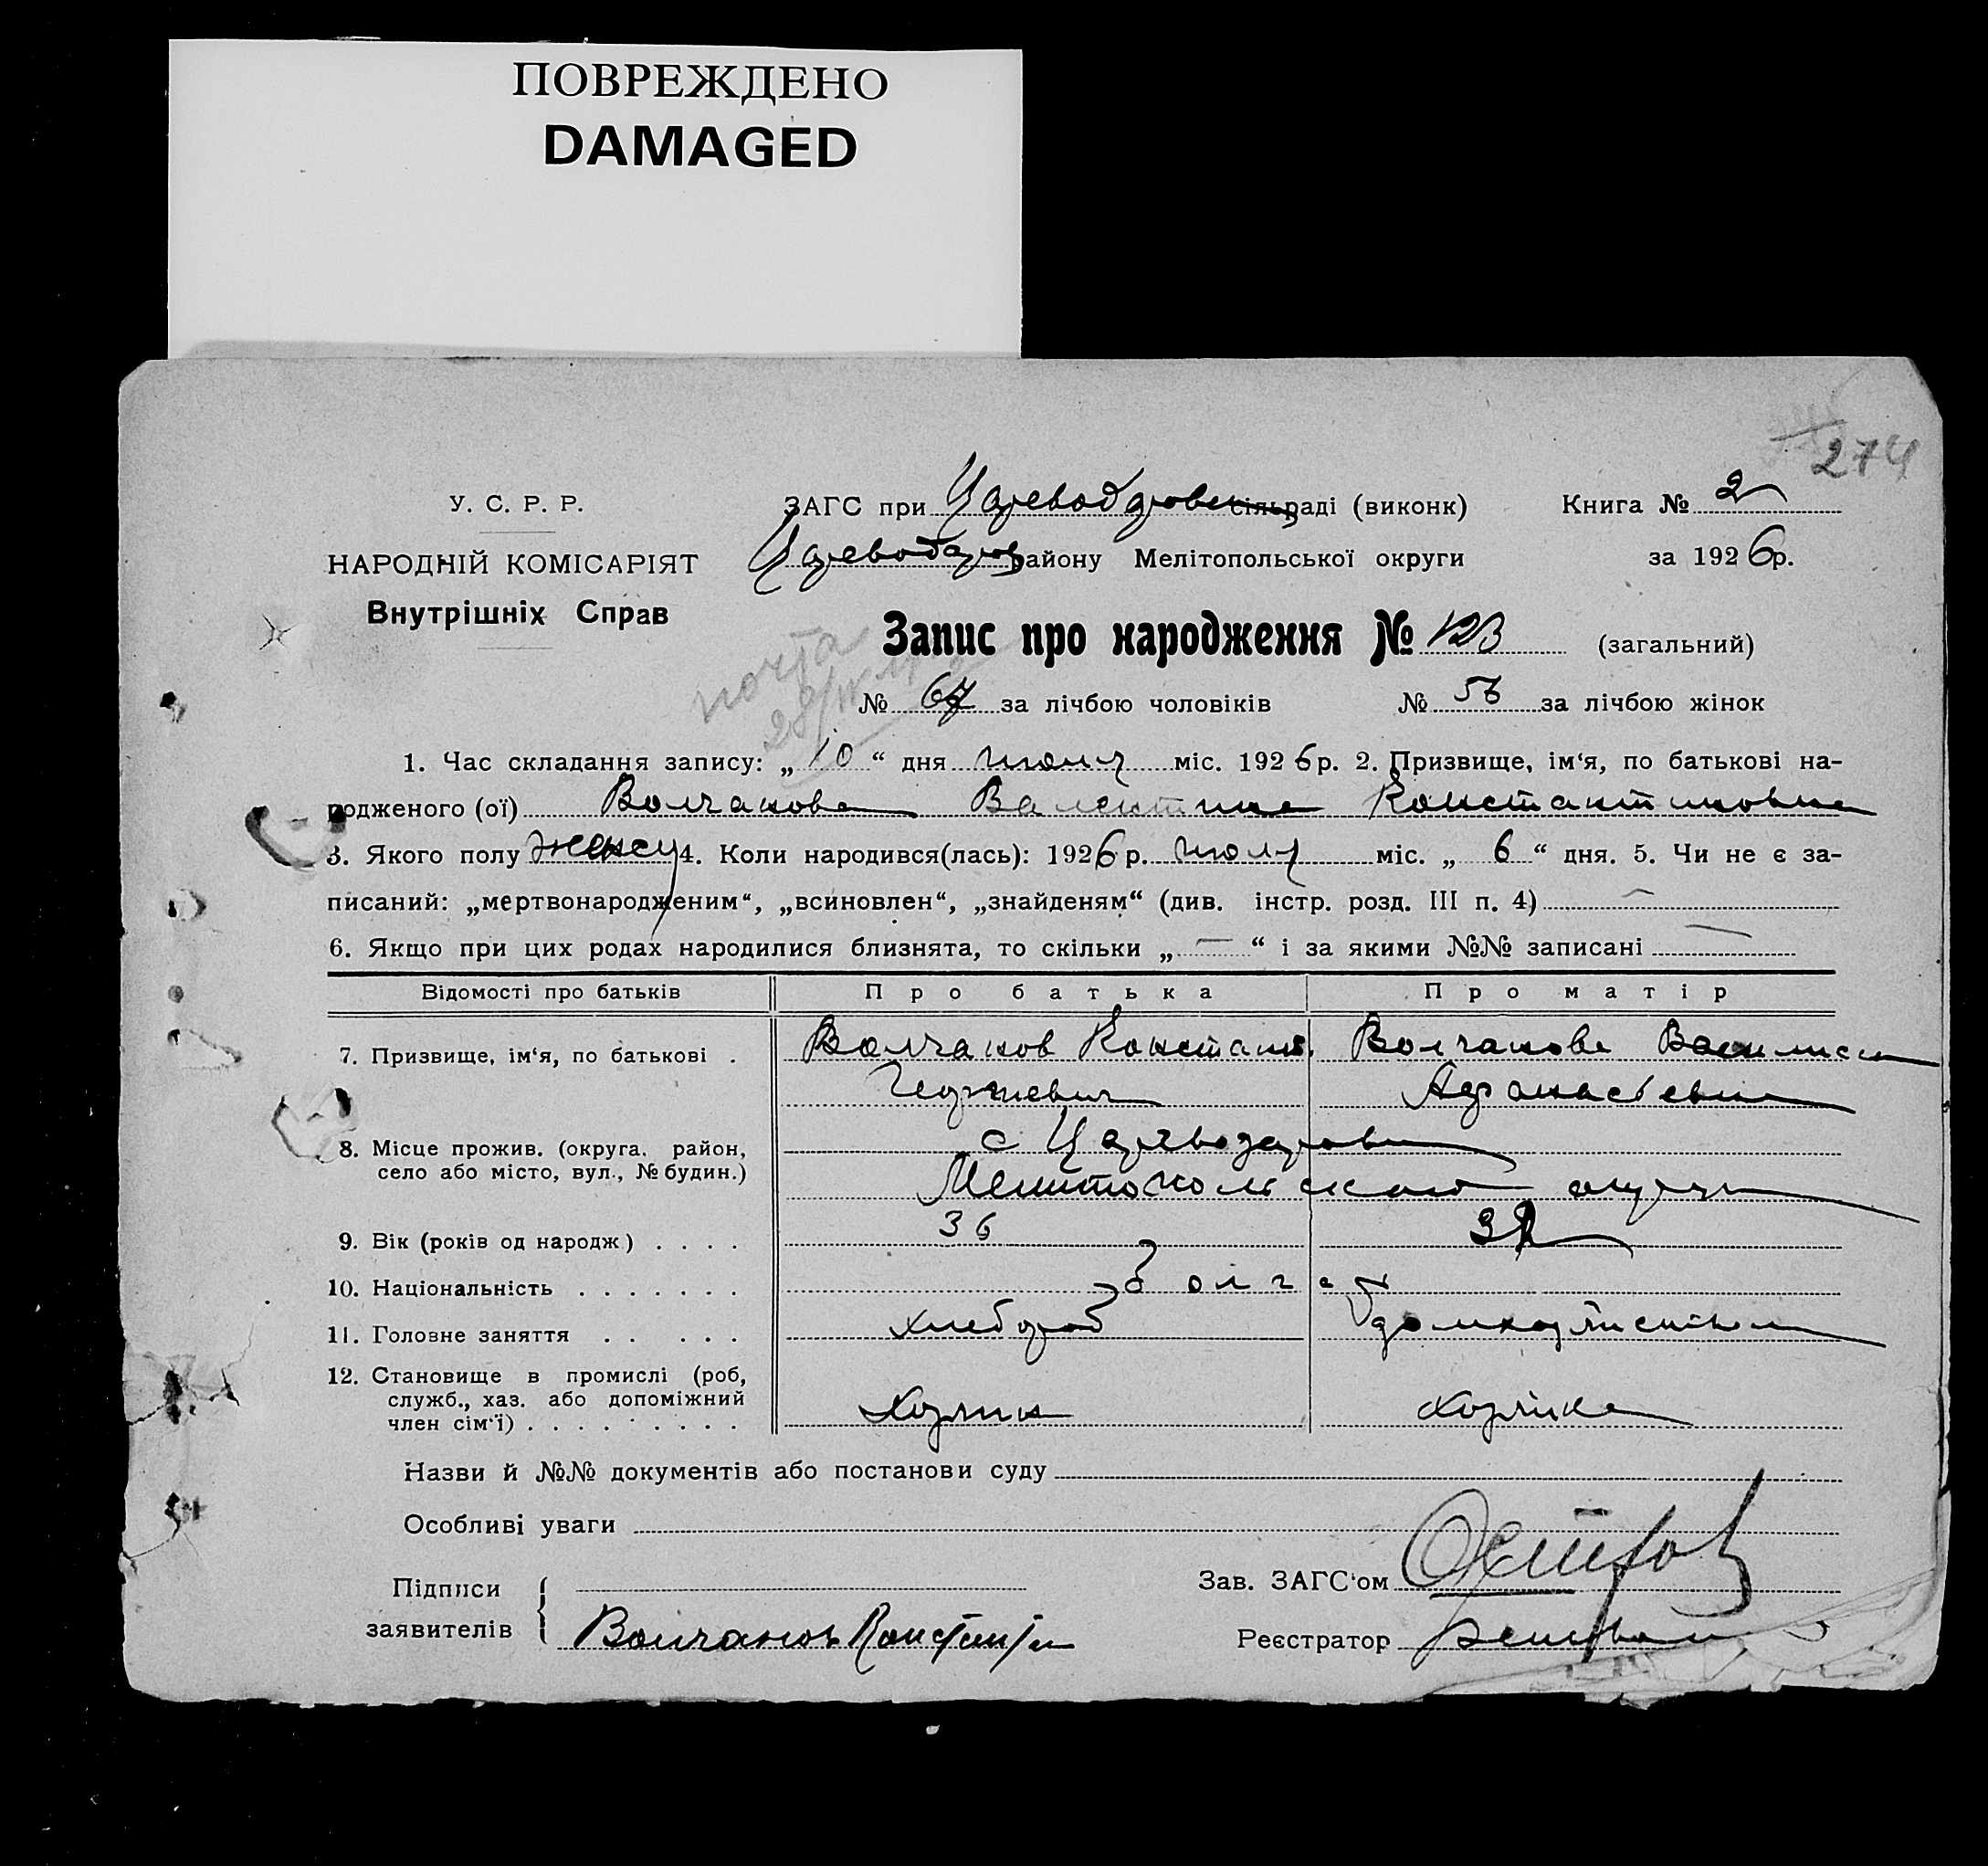 ПОВРЕЖДЕНО
DAMAGED
274
У. С. Р. Р.
НАРОДНІЙ КОМІСАРІЯТ
Внутрішніх Справ
ЗАГС при Царевод сільраді (виконк) Книга № 2
Цареводар району Мелітопольської округи за 1926р.
почта
Запис про народження № 123 (загальний)
№ 67 за лічбою чоловіків № 56 за лічбою жінок
1. Час складання запису: „ 10 “ дня июля міс. 1926р. 2. Призвище, ім‘я, по батькові на-
родженого (ої) Волчанова Валентина Константиновна
3. Якого полу женску 4. Коли народився(лась): 1926р. июля міс. „ 6 “ дня. 5. Чи не є за-
писаний: „мертвонародженим“, „всиновлен“, „знайденям“ (див. інстр. розд. III п. 4) —
6. Якщо при цих родах народилися близнята, то скільки „ — “ і за якими №№ записані —
Відомості про батьків Про батька Про матір
7. Призвище, ім‘я, по батькові . Волчанов Констант. Волчанова Василиса
Георгиевич Афанасьевна
8. Місце прожив. (округа, район,
село або місто, вул., № будин.)
с Цареводаровка
Мелитопольской округи
9. Вік (років од народж) . . . . 36
10. Національність . . . . . . . болгар
11. Головне заняття . . . . . хлебороб домхозяйка
12. Становище в промислі (роб,
служб., хаз. або допоміжний
член сім‘ї) . . . . . . . . . хозяин хозяйка
Назви й №№ документів або постанови суду
Особливі уваги
Підписи
заявителів
Волчанов Константин
Зав. ЗАГС‘ом
Реєстратор